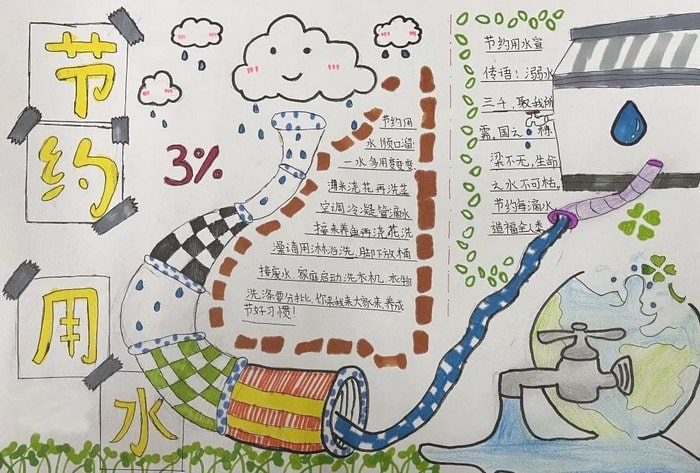 节
约
用
水
3%
节约用
水顺口溜
一水多用要变
淘米浇花再洗菜
空调冷凝管滴水
接来养鱼再浇花洗
澡请用淋浴洗,脚下放桶
接废水 家庭启动洗衣机 衣物
洗涤要分批,你来我来大家来,养成
节好习惯!
节约用水宣
传语:溺水
三千,取我所
需,国之栋
梁不无,生命
之水不可枯。
节约每滴水
造福全人类